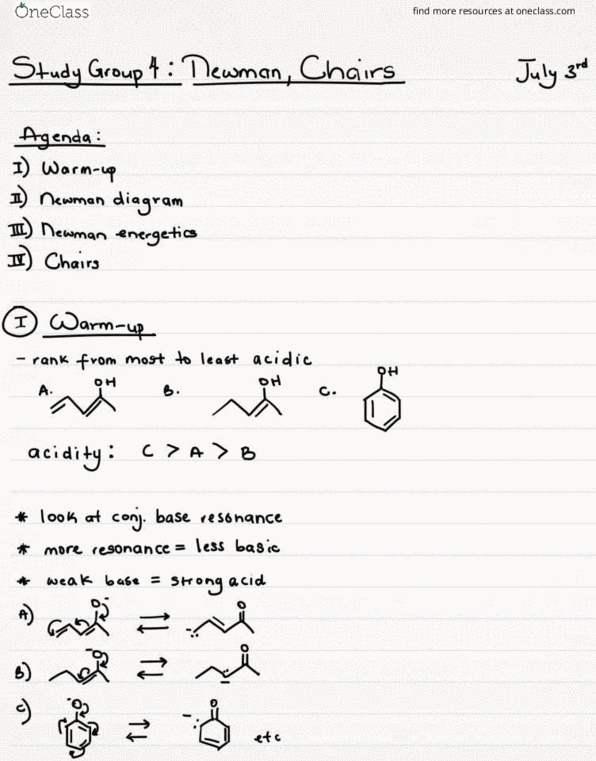 OneClass
find more resources at oneclass.com
Study Group 4: Newman, Chairs July 3rd
Agenda:
I) Warm-up
II) Newman diagram
III) Newman energetics
IV) Chairs
I Warm-up
- rank from most to least acidic
A. OH B. OH C. OH
acidity: C > A > B
* look at conj. base resonance
* more resonance = less basic
* weak base = strong acid
A) O O
B) O O
C) O O etc